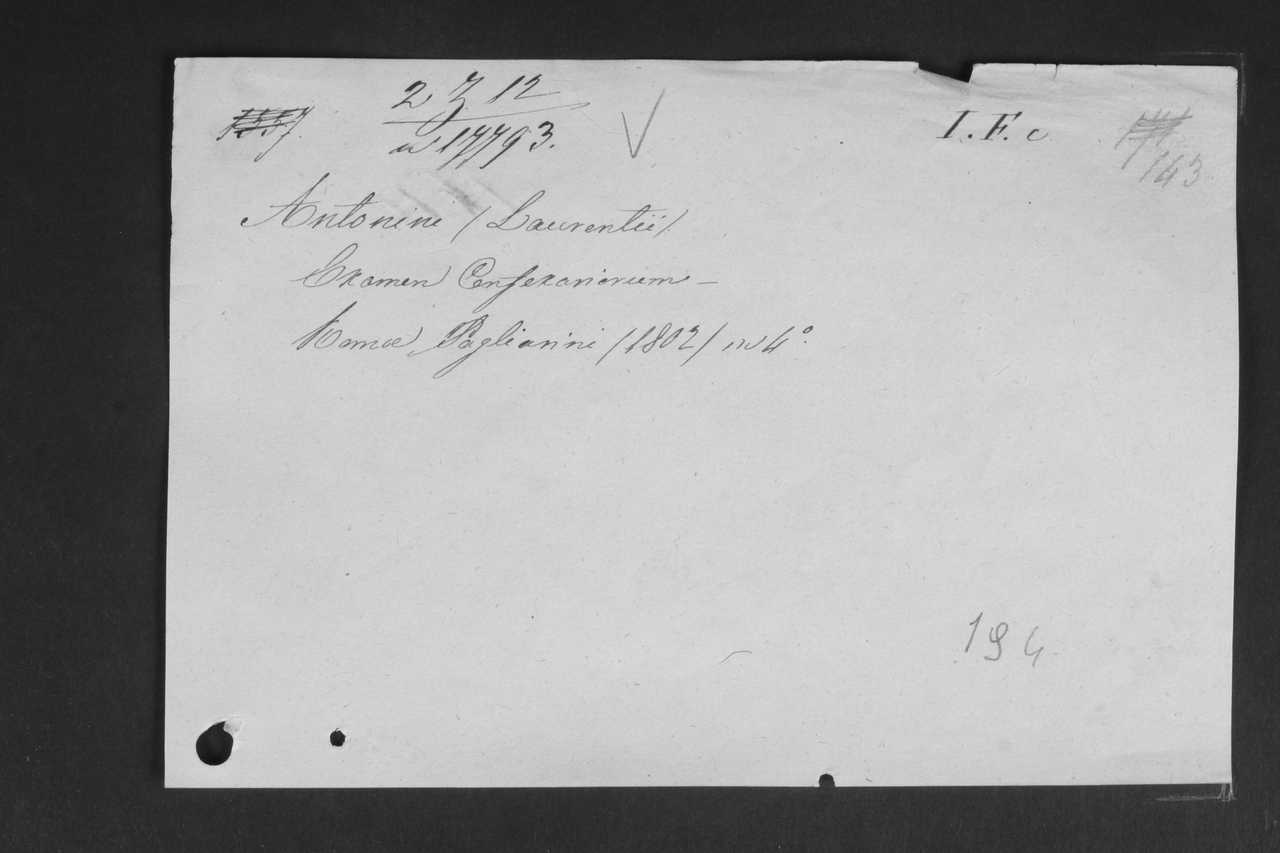 2 Z 12
17793.
I. F. c
143
Antonini (Laurentii)
Examen Consexariorum —
Romæ, Pagliarini (1802) in 4°.
194